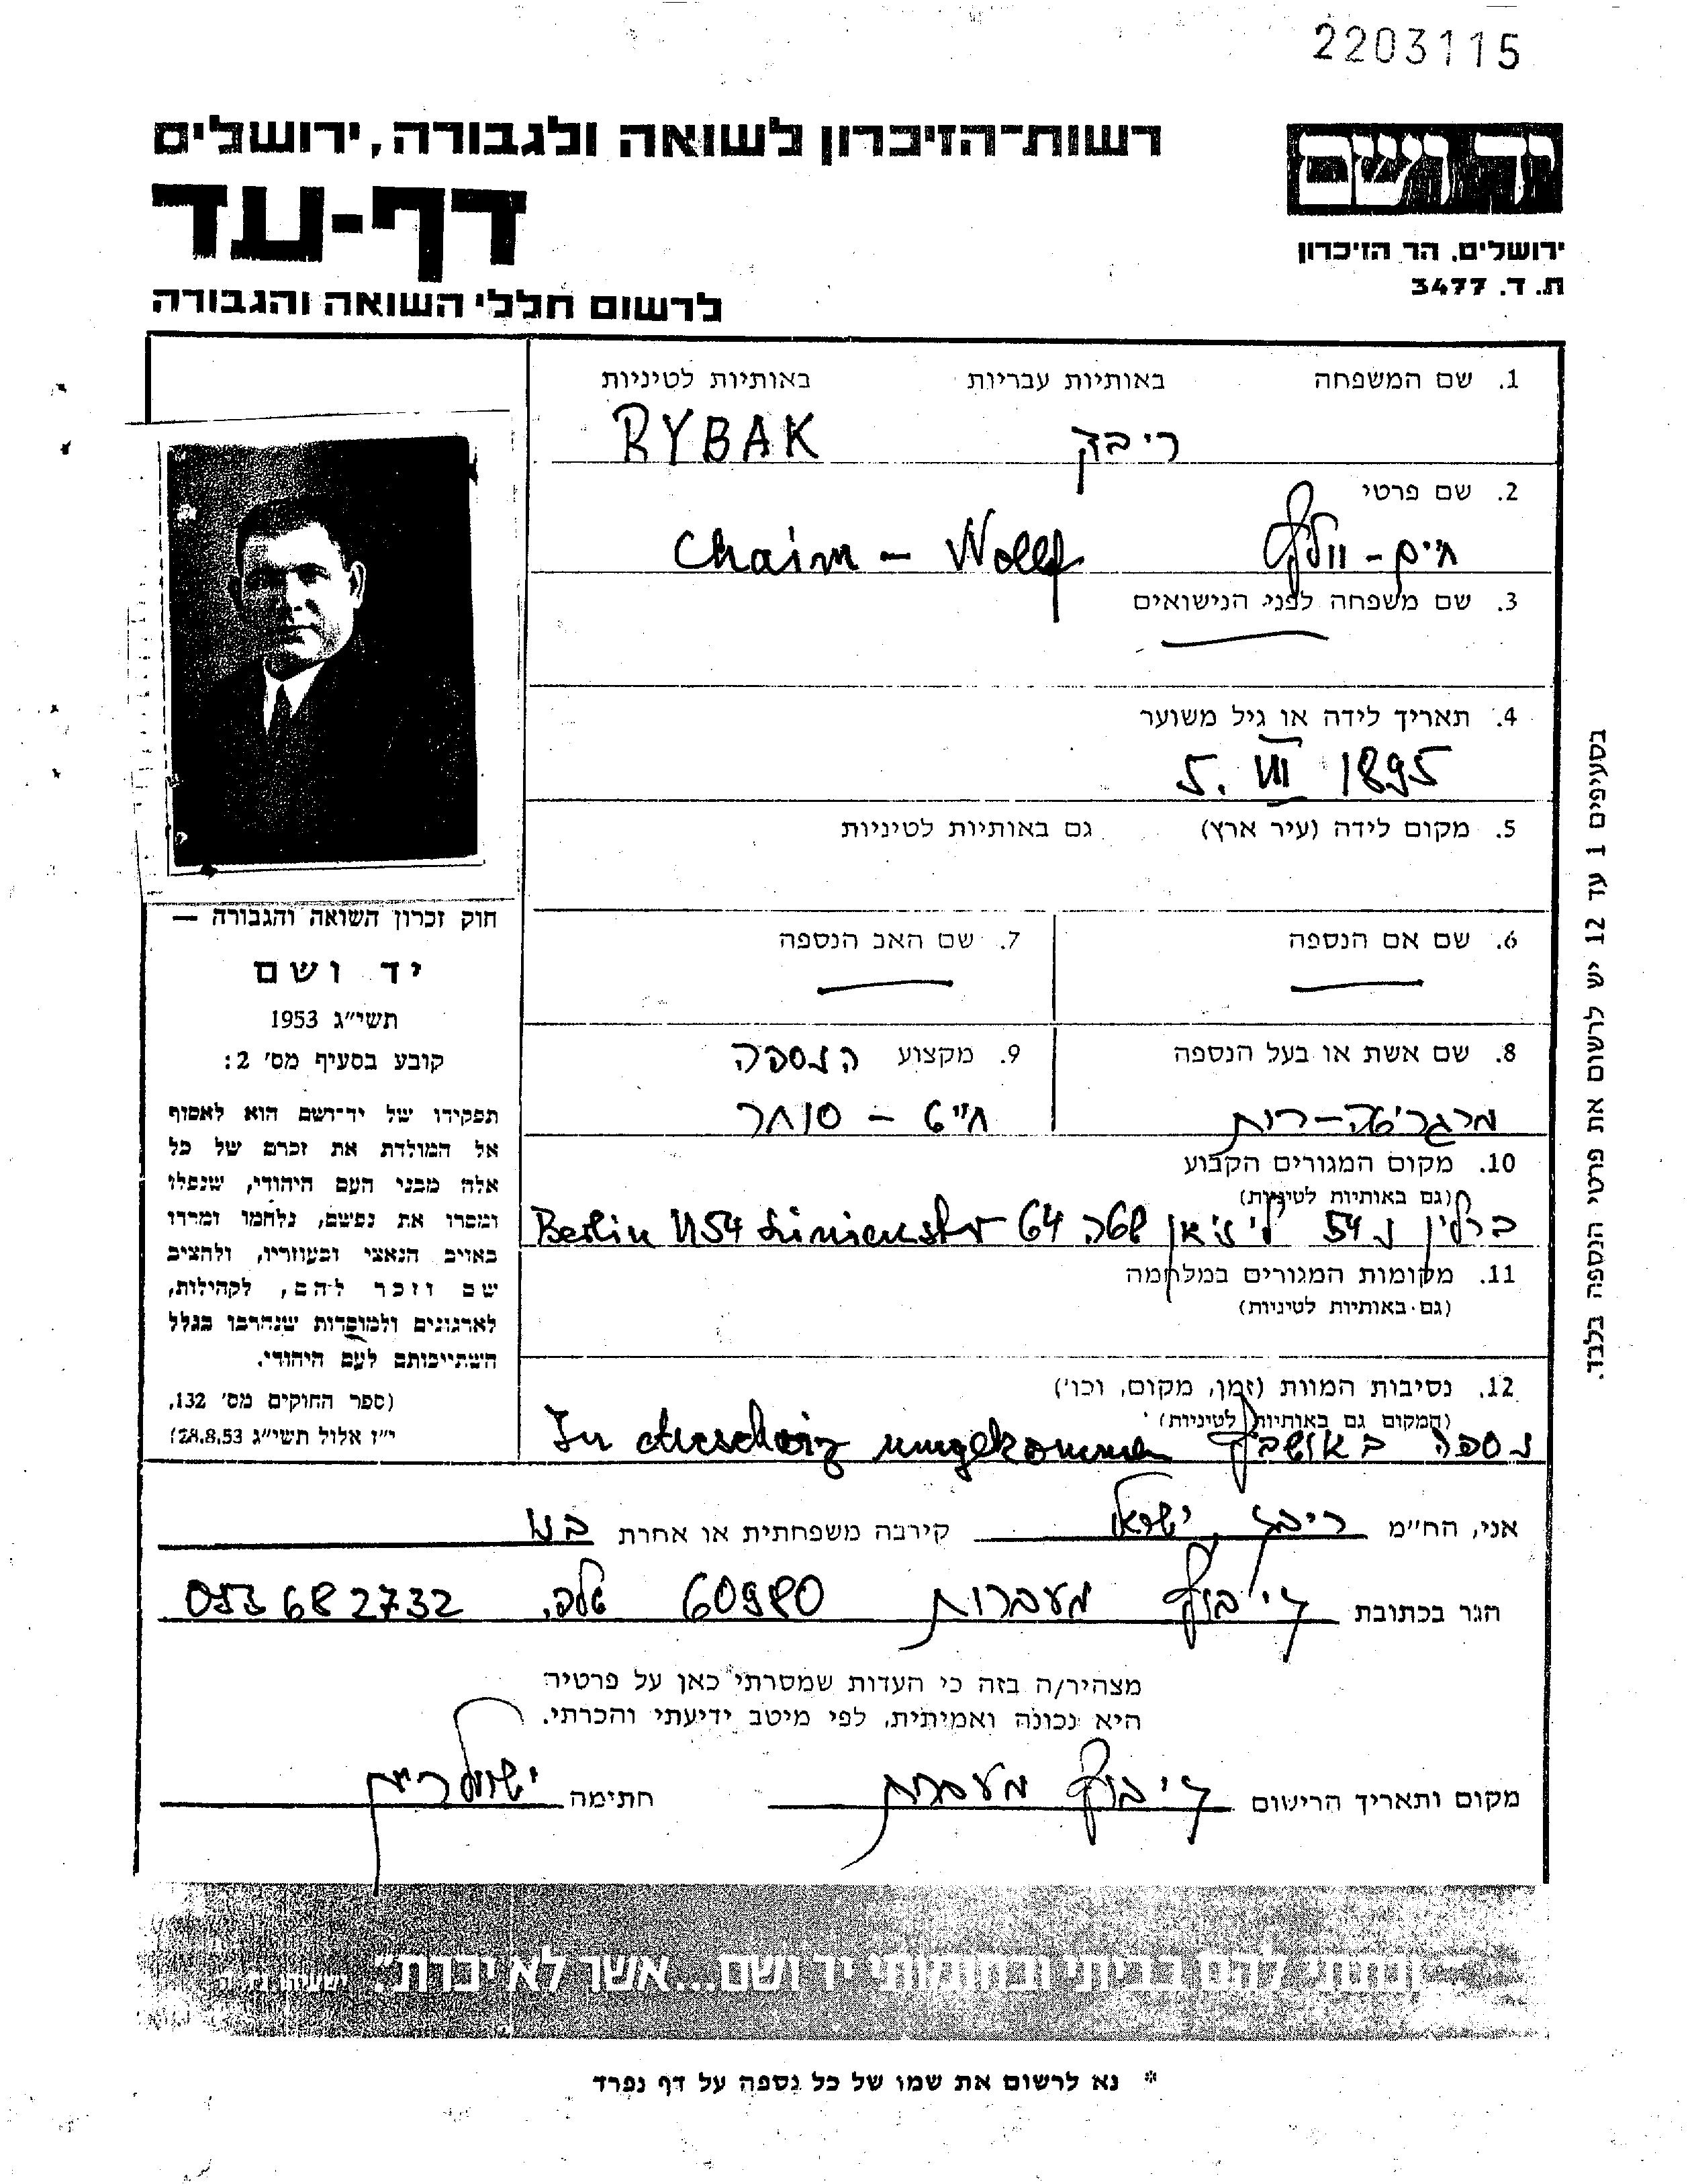 2203115
רשות־הזיכרון לשואה ולגבורה, ירושלים
יד ושם
דף-עד
ירושלים, הר הזיכרון
ת. ד. 3477
לרשום חללי השואה והגבורה
1. שם המשפחה באותיות עבריות באותיות לטיניות
ריבק RYBAK
2. שם פרטי
חיים - וולף Chaim - Wolf
3. שם משפחה לפני הנישואים
4. תאריך לידה או גיל משוער
5. VII 1895
5. מקום לידה (עיר ארץ) גם באותיות לטיניות
6. שם אם הנספה 7. שם האב הנספה
8. שם אשת או בעל הנספה 9. מקצוע הנספה
מרגריטה - רות חייט - סוחר
10. מקום המגורים הקבוע
(גם באותיות לטיניות)
ברלין נ 54 Berlin N54 Linienstr 64
11. מקומות המגורים במלחמה
(גם באותיות לטיניות)
12. נסיבות המוות (זמן, מקום, וכו')
(המקום גם באותיות לטיניות)
נספה באושביץ In Auschwiz umgekommen
חוק זכרון השואה והגבורה —
יד ושם
תשי״ג 1953
קובע בסעיף מס׳ 2:
תפקידו של יד־ושם הוא לאסוף
אל המולדת את זכרם של כל
אלה מבני העם היהודי, שנפלו
ומסרו את נפשם, נלחמו ומרדו
באויב הנאצי ובעוזריו, ולהציב
שם וזכר להם, לקהילות,
לארגונים ולמוסדות שנחרבו בגלל
השתייכותם לעם היהודי.
(ספר החוקים מס׳ 132,
י״ז אלול תשי״ג 28.8.53)
בסעיפים 1 עד 12 יש לרשום את פרטי הנספה בלבד.
אני, הח״מ ריבק ישראל קירבה משפחתית או אחרת בנו
הגר בכתובת קיבוץ מעברות 60980 טלפ. 053682732
מצהיר/ה בזה כי העדות שמסרתי כאן על פרטיה
היא נכונה ואמיתית, לפי מיטב ידיעתי והכרתי.
מקום ותאריך הרישום קיבוץ מעברות חתימה ישראל ריבק
״ונתתי להם בביתי ובחומותי יד ושם...אשר לא יכרת״. ישעיהו נו, ה
* נא לרשום את שמו של כל נספה על דף נפרד